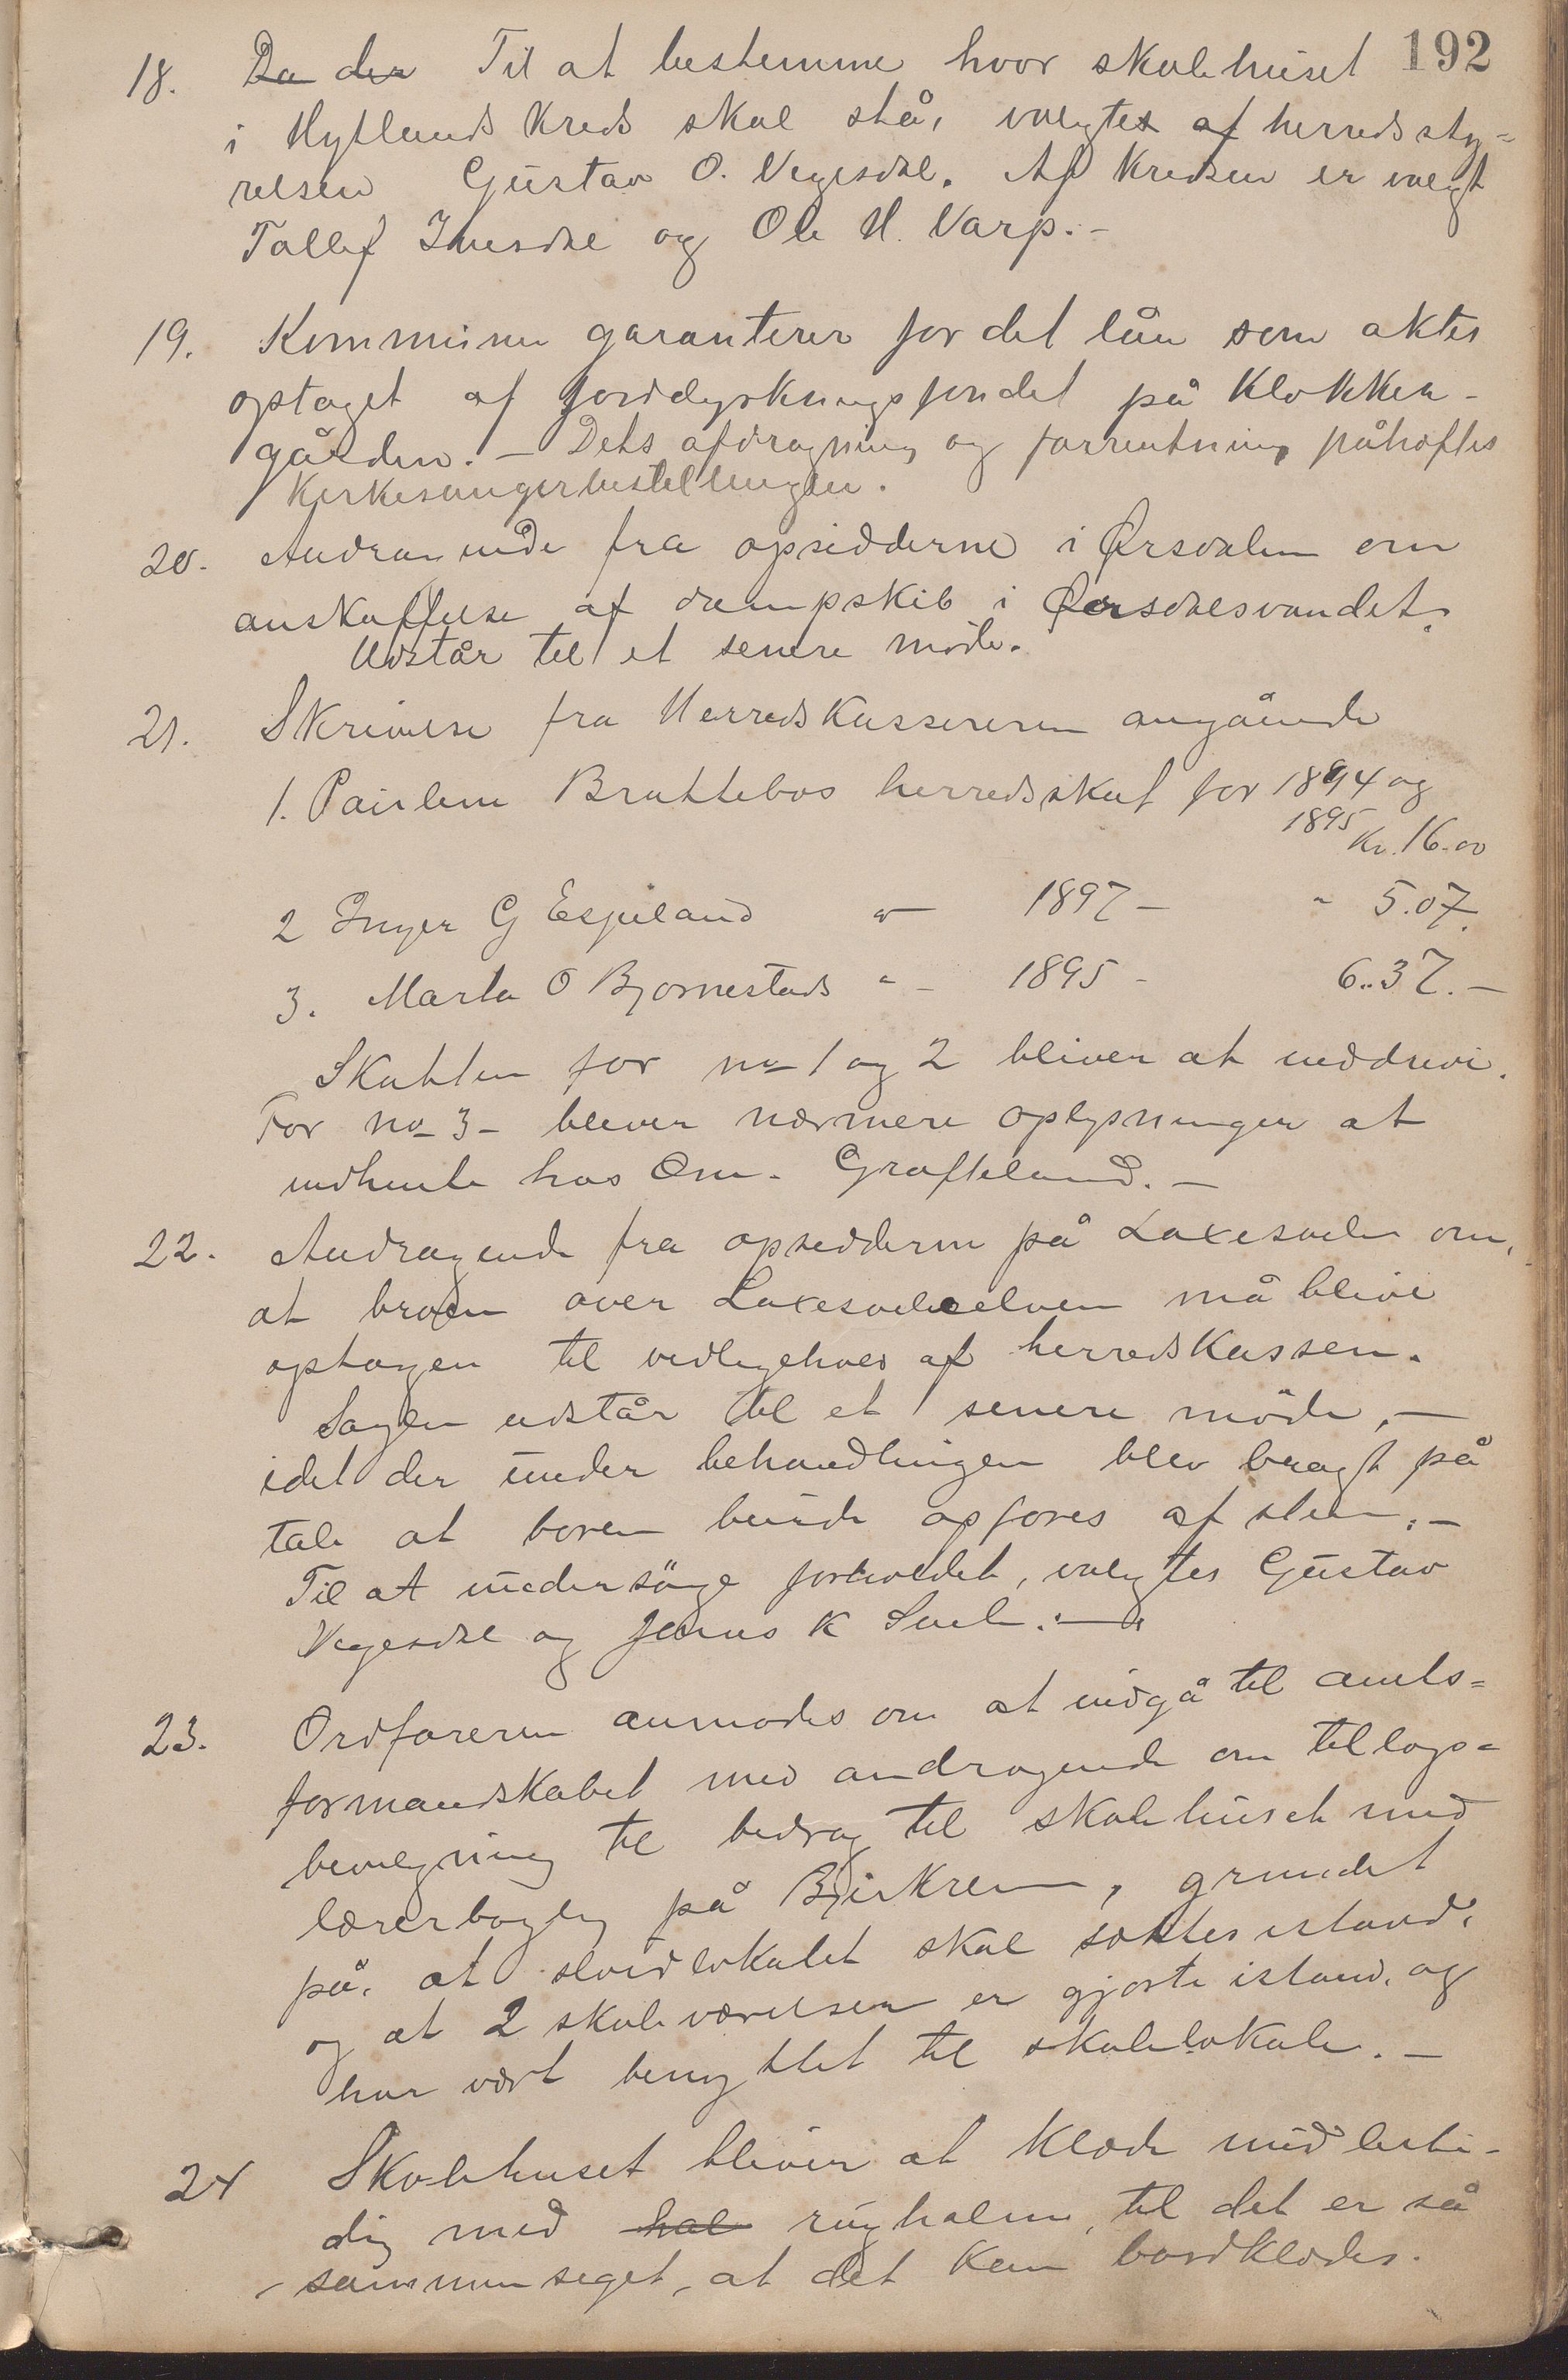 192
18. Da der Til at bestemme hvor skolehuset
i Hytlands Kreds skal stå, valgtes af herredssty=
relsen Gustav O. Vegesdal. Af Kredsen er valgt
Tallef Ivesdal og Ole H. Varp.-
19. Kommunen garanterer for det lån som aktes
optaget af jorddyrkningsfondet på Klokker-
gården. - Dets afdragning og forrentning påhæftes
Kirkesangerbestillingen.
20. Andragende fra opsidderne i Ørsdalen om
anskaffelse af dampskib i Ørsdalsvandet.
Udstår til et senere möde.
21. Skrivelse fra Herredskassereren angående
1. Pauline Brattebøs herredsskat for 1894 og
1895 Kr. 16.00
2 Inger G Espeland " - 1897 - " 5.07.
3. Marta O Bjørnestads " - 1895 - 6.37.-
Skatten for no 1 og 2 bliver at inddrive.
For no 3- bliver nærmere oplysninger at
indhente hos Om. Grøfteland. -
22. Andragende fra opsidderne på Laxesvela om,
at broen over Laxesvelaelven må blive
optagen til vedligehold af herredskassen.
Sagen udstår til et senere möde, -
idet der under behandlingen blev bragt på
tale at boren burde opføres af sten. -
Til at undersöge forholdet, valgtes Gustav
Vegesdal og Jonas K Svel. -
23. Ordføreren anmodes om at indgå til amts=
formandskabet med andragende om tillægs=
bevilgning til bidrag til skolehuset med
lærerbolig på Bjerkrem, grundet
på, at sløidlokalet skal sættes istand,
og at 2 skoleværelser er gjorte istand, og
har vært benyttet til skolelokale. -
24 Skolehuset bliver at klæde midlerti-
dig med hal rughalm, til det er så
sammenseget, at det kan bordklædes.